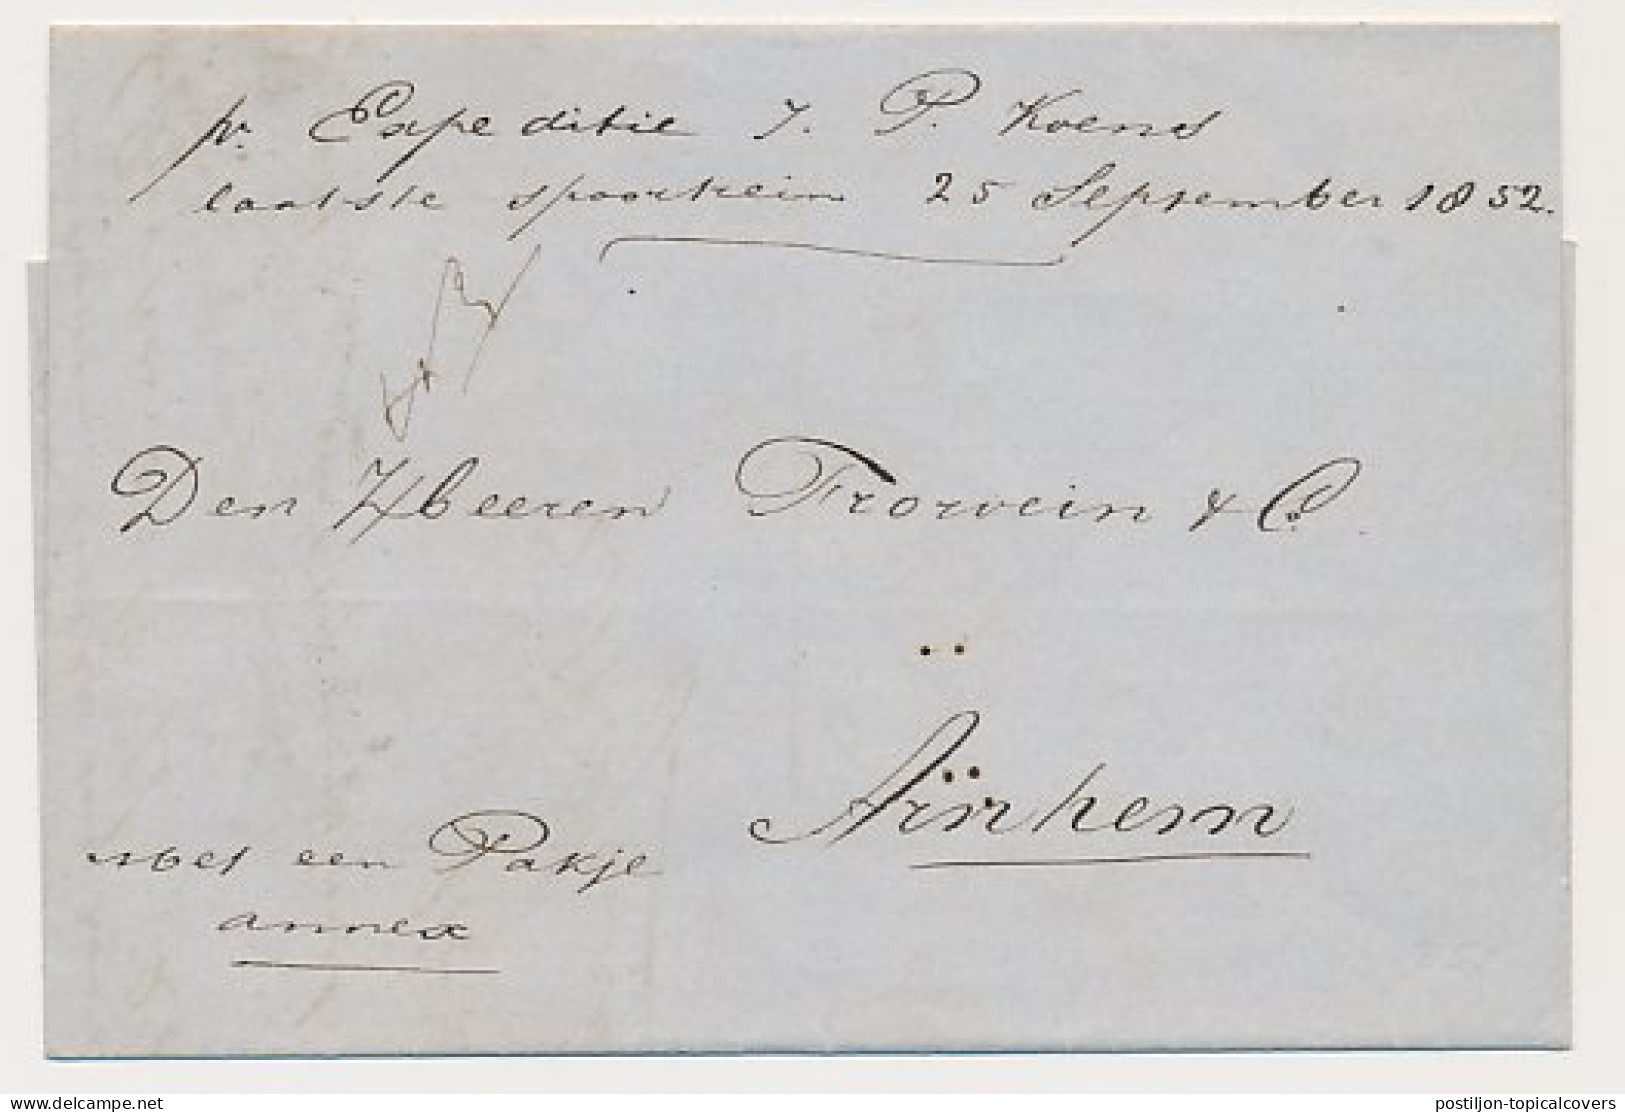 pr. Expeditie J. P. Koens
laatste spoortrein 25 September 1852.
Den Heeren Frowein & Co.
Arnhem
met een Pakje
annex
© www.delcampe.net
postiljon-topicalcovers